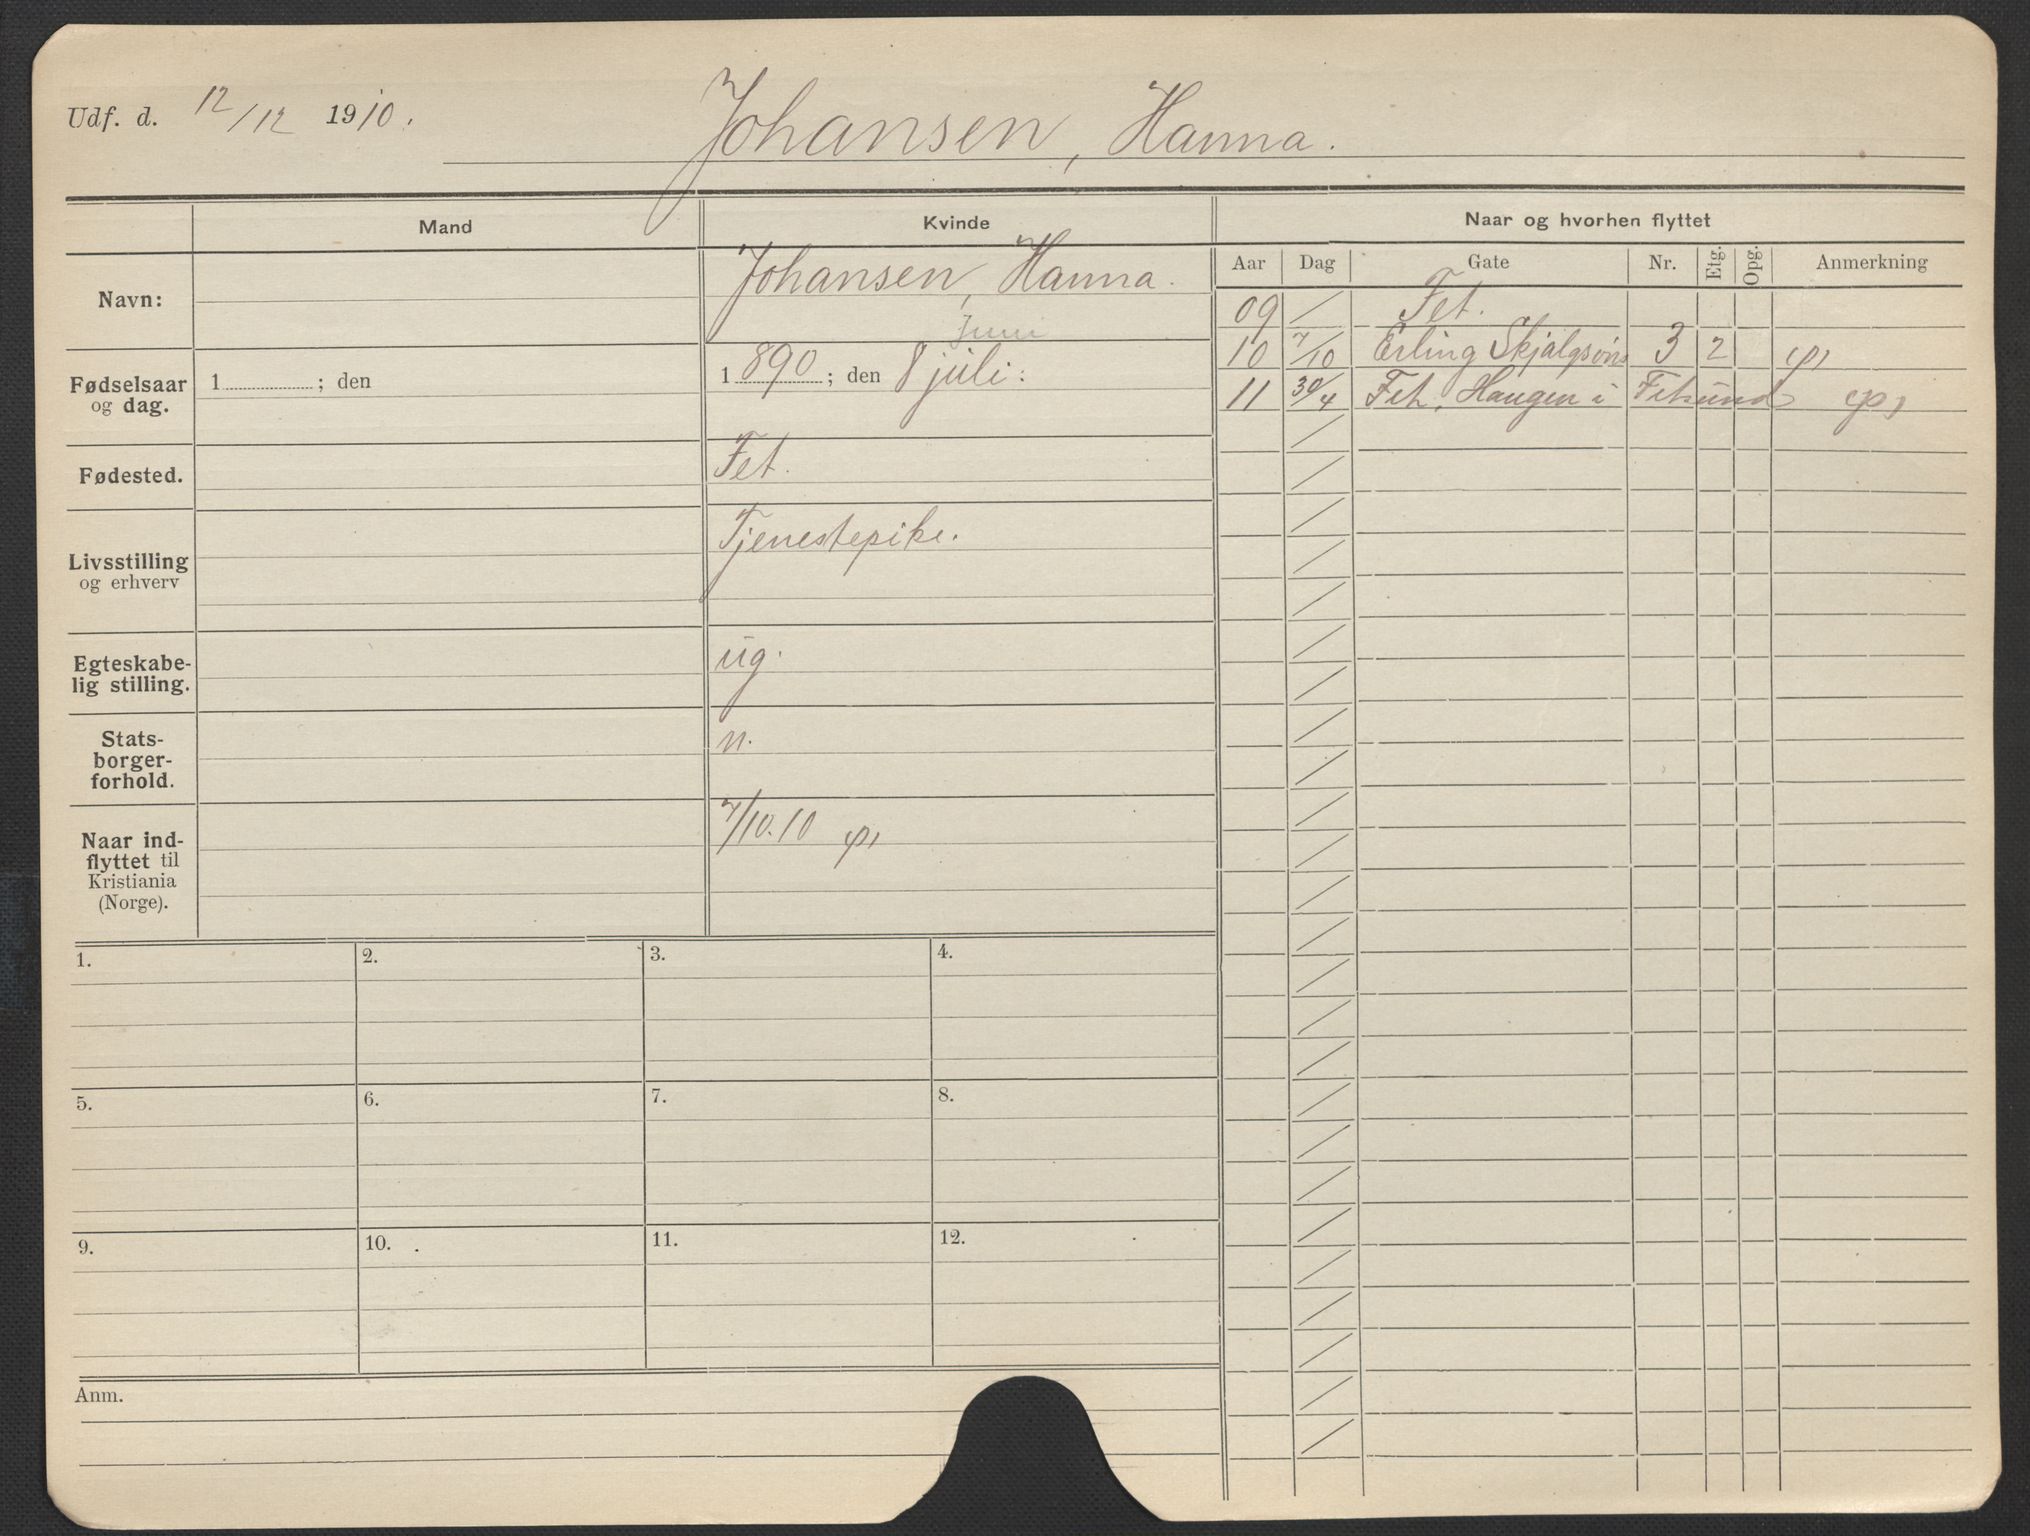 Udf. d. 12/12 1910.
Johansen, Hanna.
Mand
Kvinde
Naar og hvorhen flyttet
Aar Dag Gate Nr. Etg. Opg. Anmerkning
Navn:
Johansen, Hanna.
09 / Fet.
10 7/10 Erling Skjalgsøns 3 2
11 30/4 Fet, Haugen i Fetsund
Fødselsaar og dag.
1 ; den
Juni
1 890 ; den 8 juli.
Fødested.
Fet.
Livsstilling og erhverv
Tjenestepike.
Egteskabe-
lig stilling.
ug.
Stats-
borger-
forhold.
n.
Naar ind-
flyttet til
Kristiania
(Norge).
7/10.10
1. 2. 3. 4.
5. 6. 7. 8.
9. 10. 11. 12.
Anm.